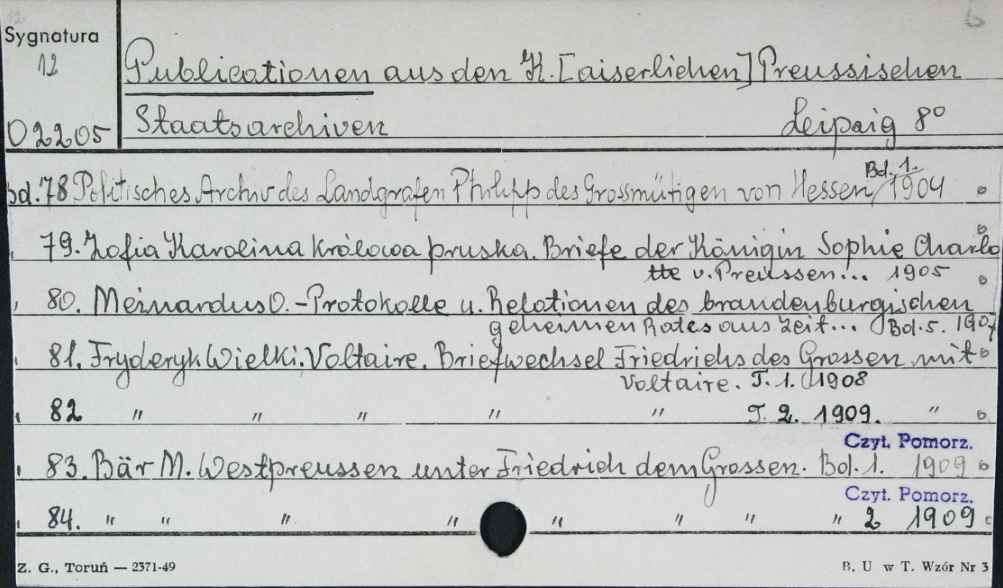 6
Sygnatura
12
Publicationen aus den K.[aiserlichen] Preussischen
02205 Staatsarchiven Leipzig 8°
Bd. 78 Politisches Archiv des Landgrafen Philipp des Grossmütigen von Hessen, Bd. 1. 1904 b
79. Zofia Karolina królowa pruska. Briefe der Königin Sophie Charlo b
tte v. Preussen... 1905 b
80. Meinardus O. - Protokolle u. Relationen des brandenburgischen
geheimen Rates aus Zeit... Bd. 5. 1907
81. Fryderyk Wielki. Voltaire. Briefwechsel Friedrichs des Grossen mit b
Voltaire. T. 1. 1908
82 " " " " " T. 2. 1909. " b
Czyt. Pomorz.
83. Bär M. Westpreussen unter Friedrich dem Grossen. Bd. 1. 1909 b
Czyt. Pomorz.
84. " " " " " " " " 2 1909
Z. G., Toruń — 2371-49 B. U w T. Wzór Nr 3